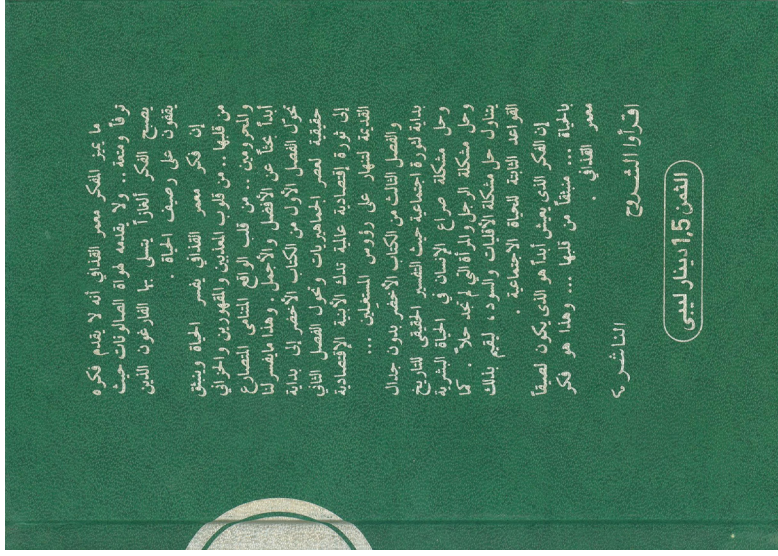 ما يميز المفكر معمر القذافي أنه لا يقدم فكره
ترفاً ومتعة .. ولا يقدمه لهواة الصالونات حيث
يصبح الفكر ألغازاً يتسلى بها الفارغون الذين
يقفون على رصيف الحياة .
إن فكر معمر القذافي يفسر الحياة وينبثق
من قلبها .. من قلوب المعذبين والمقهورين والحزانى
والمحرومين .. من قلب الواقع المتنامي المتصارع
أبداً بحثاً عن الأفضل والأجمل . وهذا مايفسر لنا
تحوّل الفصل الأول من الكتاب الأخضر إلى بداية
حقيقية لعصر الجماهيريات وتحول الفصل الثاني
إلى ثورة إقتصادية عالمية تدك الأبنية الإقتصادية
القديمة لتنهار على رؤوس المستغلين ...
والفصل الثالث من الكتاب الأخضر بدون جدال
بداية لثورة اجتماعية حيث التفسير الحقيقي للتاريخ
وحل مشكلة صراع الإنسان في الحياة البشرية
وحل مشكلة الرجل والمرأة التي لم تجد حلاً . كما
يتناول حل مشكلة الأقليات والسود ، ليقيم بذلك
القواعد الثابتة للحياة الاجتماعية .
إن الفكر الذي يعيش أبداً هو الذي يكون لصيقاً
بالحياة ... منبثقاً من قلبها ... وهذا هو فكر
معمر القذافي .
اقرأوا الشروح
الناشر
الثمن 1,5 دينار ليبي